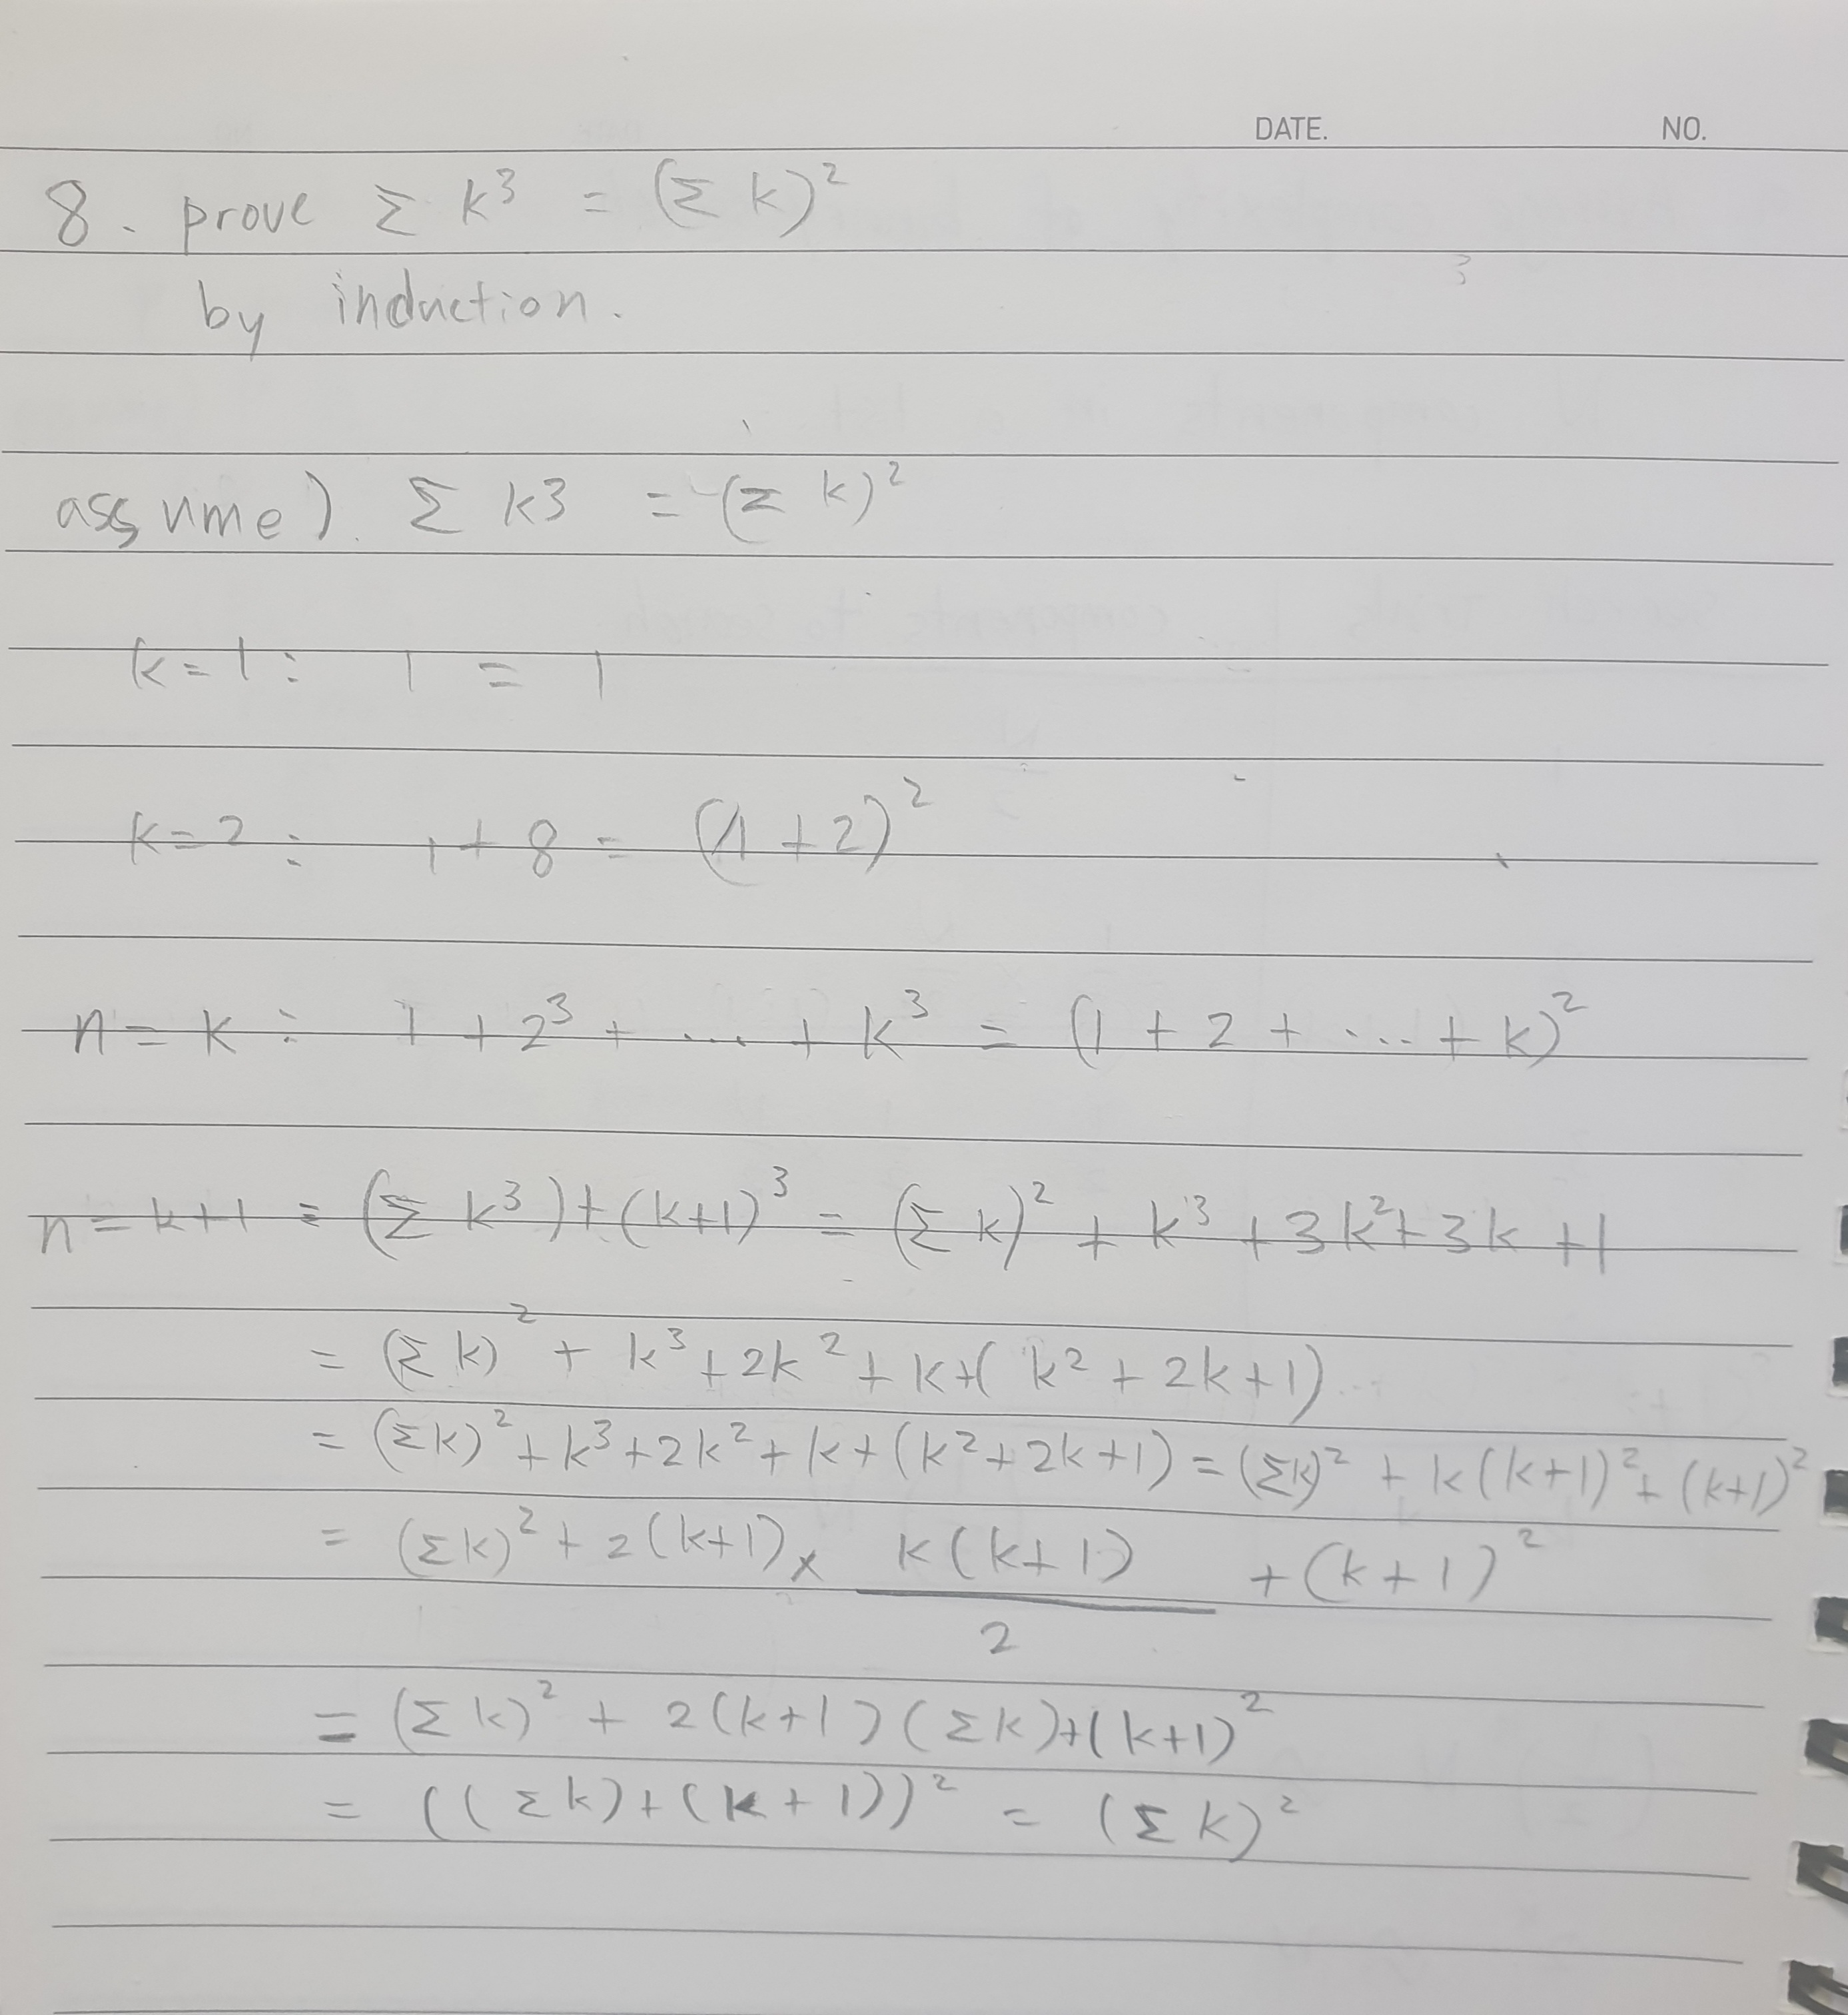 DATE. NO.
8. prove Σ k³ = (Σ k)²
by induction.
assume) Σ k3 = (Σ k)²
k=1: 1 = 1
k=2: 1+8 = (1+2)²
n=k: 1+2³+...+k³ = (1+2+...+k)²
n=k+1 = (Σ k³)+(k+1)³ = (Σ k)² + k³ +3k²+3k+1
= (Σ k)² + k³+2k²+k+(k²+2k+1)
= (Σk)²+k³+2k²+k+(k²+2k+1) = (Σk)² + k(k+1)²+(k+1)²
= (Σk)²+2(k+1)× k(k+1)/2 +(k+1)²
= (Σk)² + 2(k+1)(Σk)+(k+1)²
= ((Σk)+(k+1))² = (Σk)²